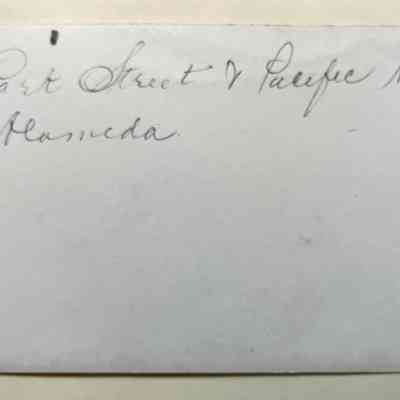 Park Street & Pacific
Alameda